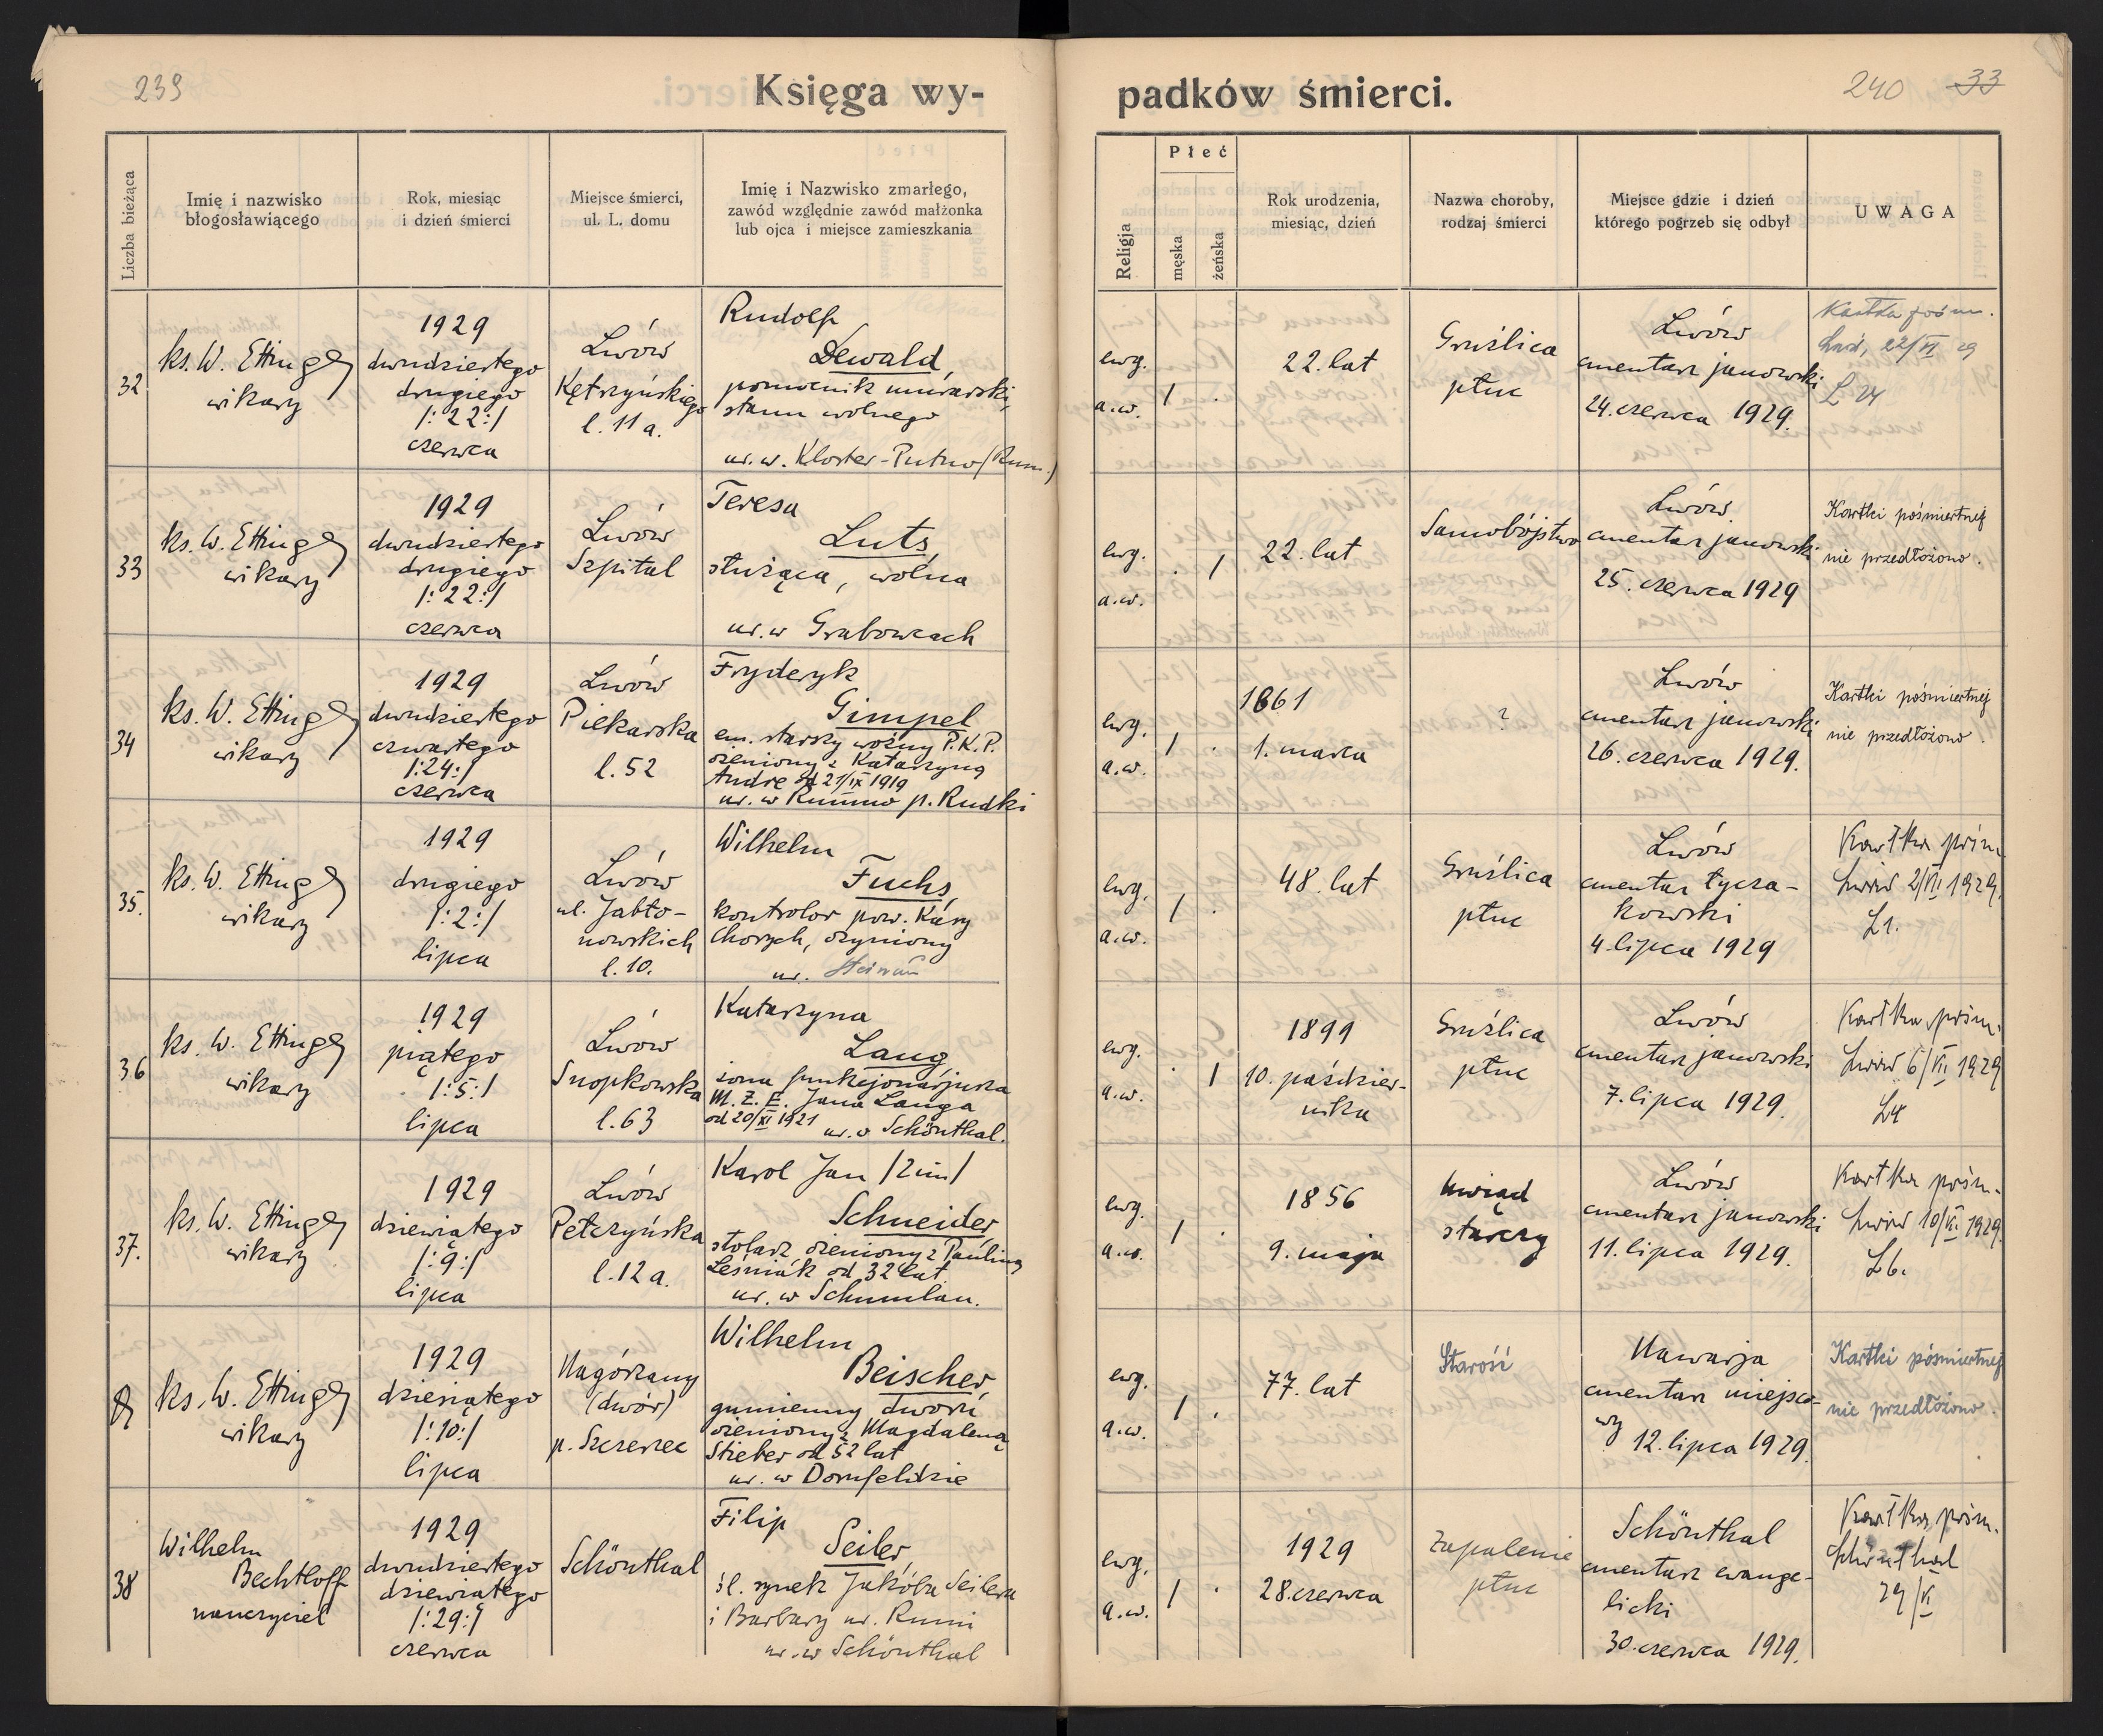 239
Księga wy-
padków śmierci.
240 33
Liczba bieżąca
Imię i nazwisko
błogosławiącego
Rok, miesiąc
i dzień śmierci
Miejsce śmierci,
ul. L. domu
Imię i Nazwisko zmarłego,
zawód względnie zawód małżonka
lub ojca i miejsce zamieszkania
Religja
Płeć
męska
żeńska
Rok urodzenia,
miesiąc, dzień
Nazwa choroby,
rodzaj śmierci
Miejsce gdzie i dzień
którego pogrzeb się odbył
UWAGA
32
ks. W. Ettinger
wikary
1929
dwudziestego
drugiego
/:22:/
czerwca
Lwów
Kętrzyńskiego
l. 11 a.
Rudolf
Dewald,
pomocnik murarski,
stanu wolnego
ur. w. Kloster-Putno (Rum.)
ewg.
a.w.
/ .
22. lat
Gruźlica
płuc
Lwów
cmentarz janowski
24. czerwca 1929.
Kartka pośm.
22/VI 29
L 24
33
ks. W. Ettinger
wikary
1929
dwudziestego
drugiego
/:22:/
czerwca
Lwów
Szpital
Teresa
Luts,
służąca, wolna
ur. w Grabowcach
ewg.
a.w.
. /
22. lat
Samobójstwo
Lwów
cmentarz janowski
25. czerwca 1929
Kartki pośmiertnej
nie przedłożono.
34
ks. W. Ettinger
wikary
1929
dwudziestego
czwartego
/:24:/
czerwca
Lwów
Piekarska
l. 52
Fryderyk
Gimpel
em. starszy woźny P.K.P.
ożeniony z Katarzyną
Andre od 21/IX 1919
ur. w Rumno p. Rudki
ewg.
a.w.
/ .
1861
1. marca
?
Lwów
cmentarz janowski
26. czerwca 1929.
Kartki pośmiertnej
nie przedłożono.
35.
ks. W. Ettinger
wikary
1929
drugiego
/:2:/
lipca
Lwów
ul. Jabło-
nowskich
l. 10.
Wilhelm
Fuchs,
kontrolor pow. Kasy
Chorych, ożyniony
ur.
ewg.
a.w.
/ .
48. lat
Gruźlica
płuc
Lwów
cmentarz łycza-
kowski
4. lipca 1929
Kartka pośm.
Lwów 2/VII 1929.
L1.
36
ks. W. Ettinger
wikary
1929
piątego
/:5:/
lipca
Lwów
Snopkowska
l. 63
Katarzyna
Lang,
żona funkcjonarjusza
M. Z. E. Jana Langa
od 20/XI 1921 ur. w Schönthal.
ewg.
a.w.
. /
1899
10. paździer-
nika
Gruźlica
płuc
Lwów
cmentarz janowski
7. lipca 1929.
Kartka pośm.
Lwów 6/VII 1929
L4
37.
ks. W. Ettinger
wikary
1929
dziewiątego
/:9:/
lipca
Lwów
Pełczyńska
l. 12 a.
Karol Jan /2im/
Schneider,
stolarz ożeniony z Pauliną
Leśniak od 32 lat
ur. w Schumlau.
ewg.
a.w.
/ .
1856
9. maja
Uwiąd
starczy
Lwów
cmentarz janowski
11. lipca 1929.
Kartka pośm.
Lwów 10/VII 1929.
L6.
ks. W. Ettinger
wikary
1929
dziesiątego
/:10:/
lipca
Nagórzany
(dwór)
p. Szczerzec
Wilhelm
Beischer,
gumienny dworu
ożeniony z Magdaleną
Stieber od 52 lat
ur. w Dornfeldzie
ewg.
a.w.
/ .
77. lat
Starość
Nawarja
cmentarz miejsco-
wy
12. lipca 1929.
Kartki pośmiertnej
nie przedłożono.
38
Wilhelm
Bechtloff
nauczyciel
1929
dwudziestego
dziewiątego
/:29:/
czerwca
Schönthal
Filip
Seiler,
śl. synek Jakóba Seilera
i Barbary ur. Rumi
ur. w Schönthal
ewg.
a.w.
/ .
1929
28. czerwca
Zapalenie
płuc
Schönthal
cmentarz ewange-
licki
30. czerwca 1929.
Kartka pośm.
Schönthal
29/VI